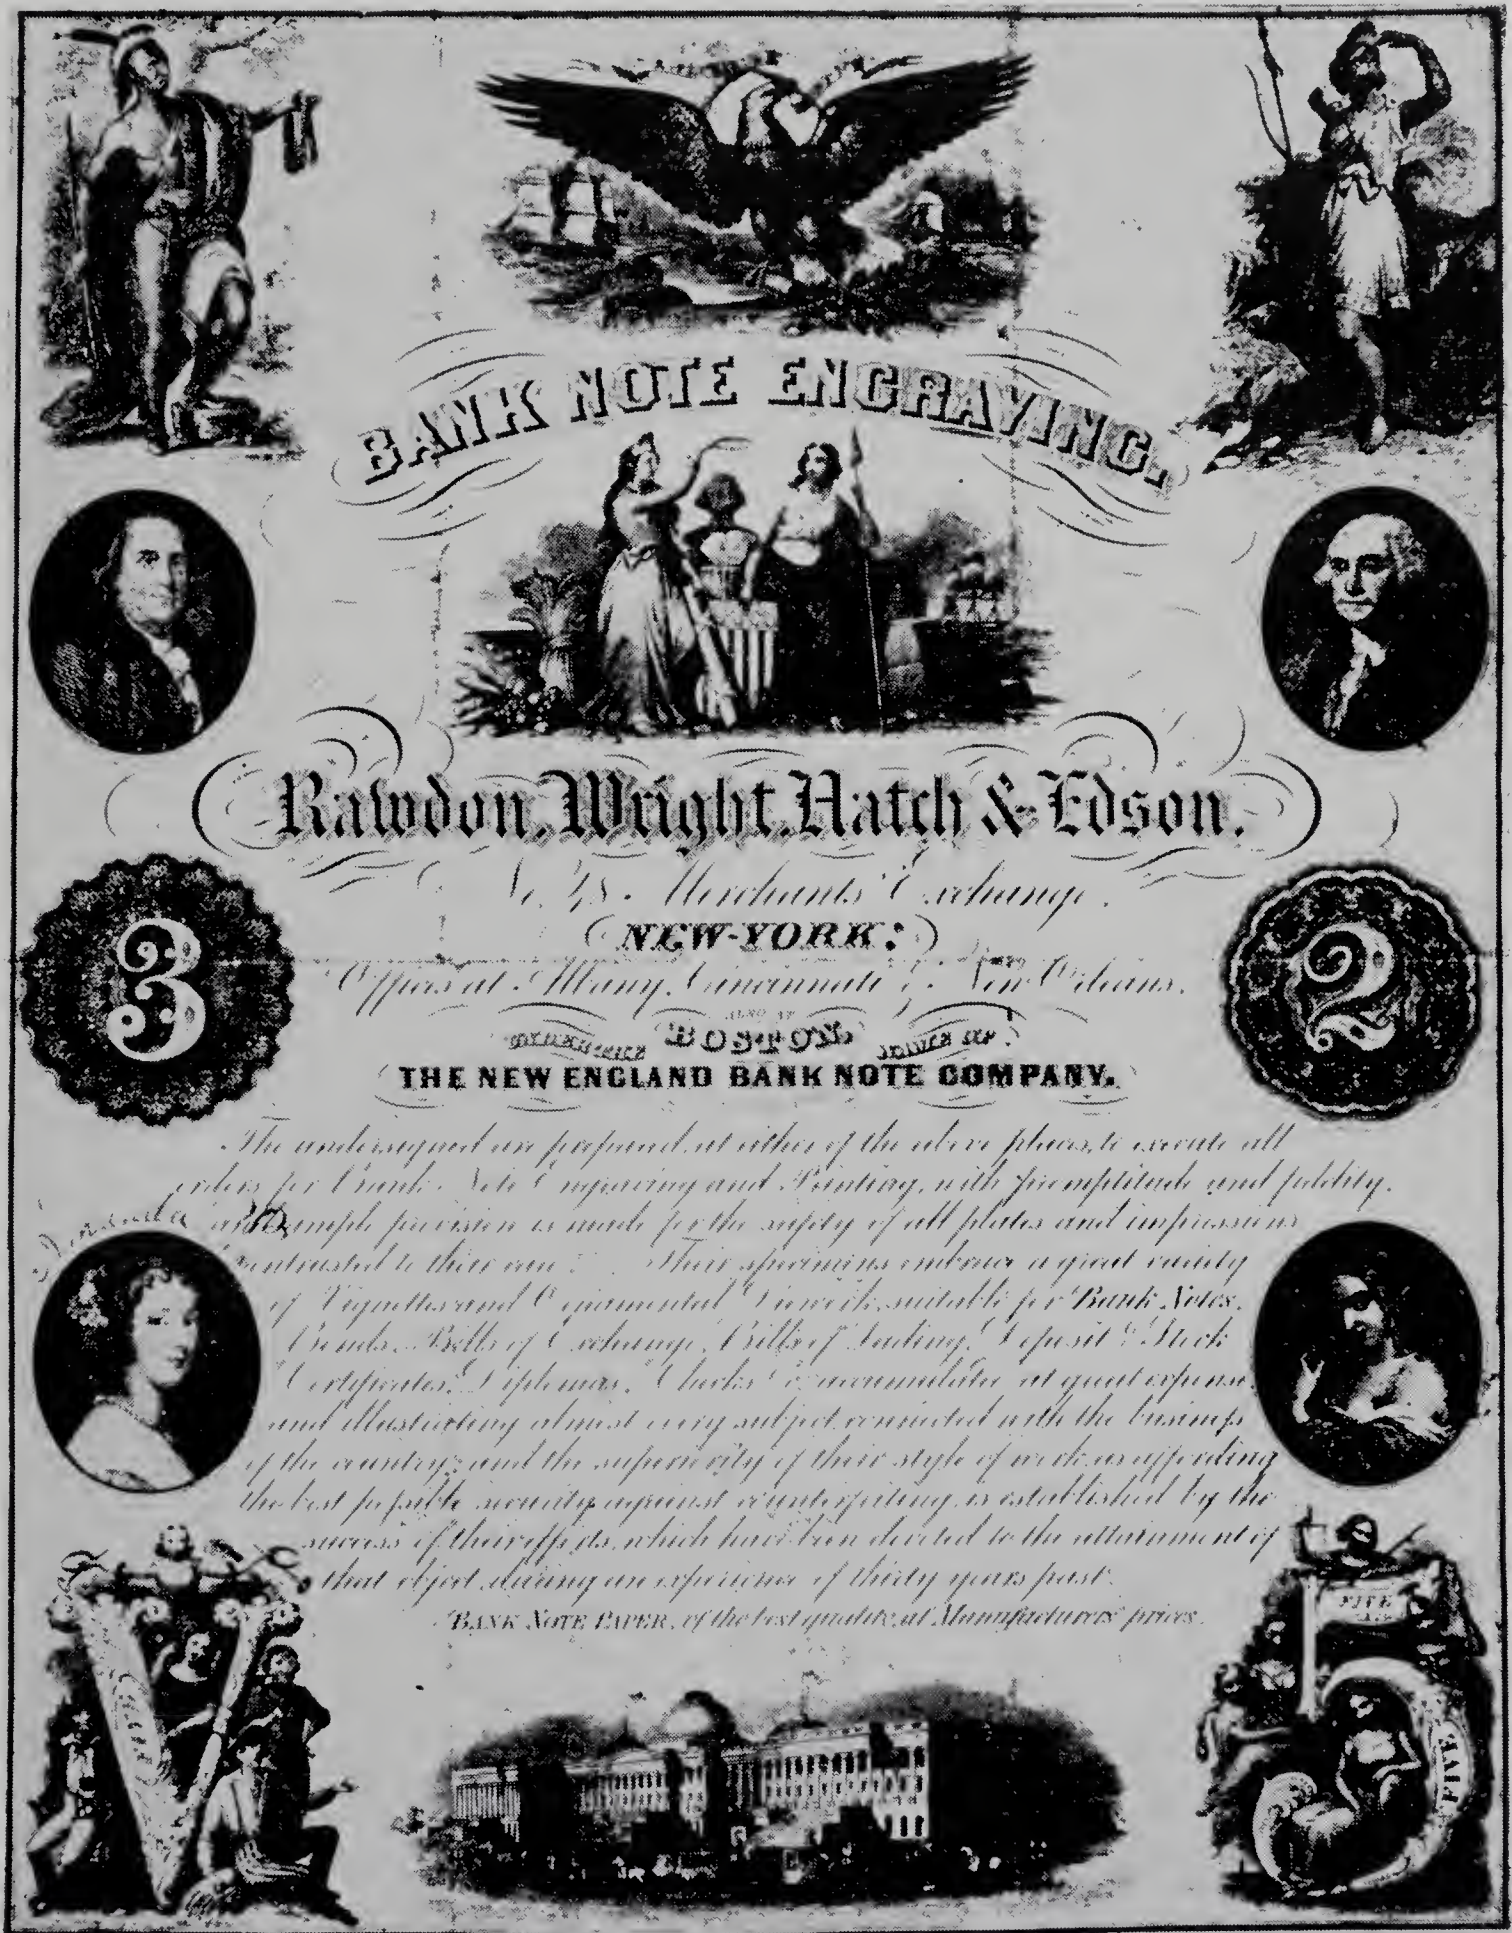 BANK NOTE ENGRAVING.
Rawdon, Wright, Hatch & Edson.
No. 48. Merchants' Exchange.
(NEW-YORK:)
Offices at Albany, Cincinnati & New Orleans.
ALSO AT
BOSTON,
THE NEW ENGLAND BANK NOTE COMPANY.
3
2
The undersigned are prepared, at either of the above places, to execute all
orders for Bank Note Engraving and Printing, with promptitude and fidelity.
ample provision is made for the safety of all plates and impressions
entrusted to their care. Their specimens embrace a great variety
of Vignettes and Ornamental Diework, suitable for Bank Notes,
Bonds, Bills of Exchange, Bills of Lading, Deposit & Stock
Certificates, Diplomas, Checks &c accumulated at great expense,
and illustrating almost every subject connected with the business
of the country; and the superiority of their style of work, as affording
the best possible security against counterfeiting, is established by the
success of their efforts, which have been devoted to the attainment of
that object, during an experience of thirty years past.
BANK NOTE PAPER, of the best quality, at Manufacturers' prices.
FIVE
FIVE